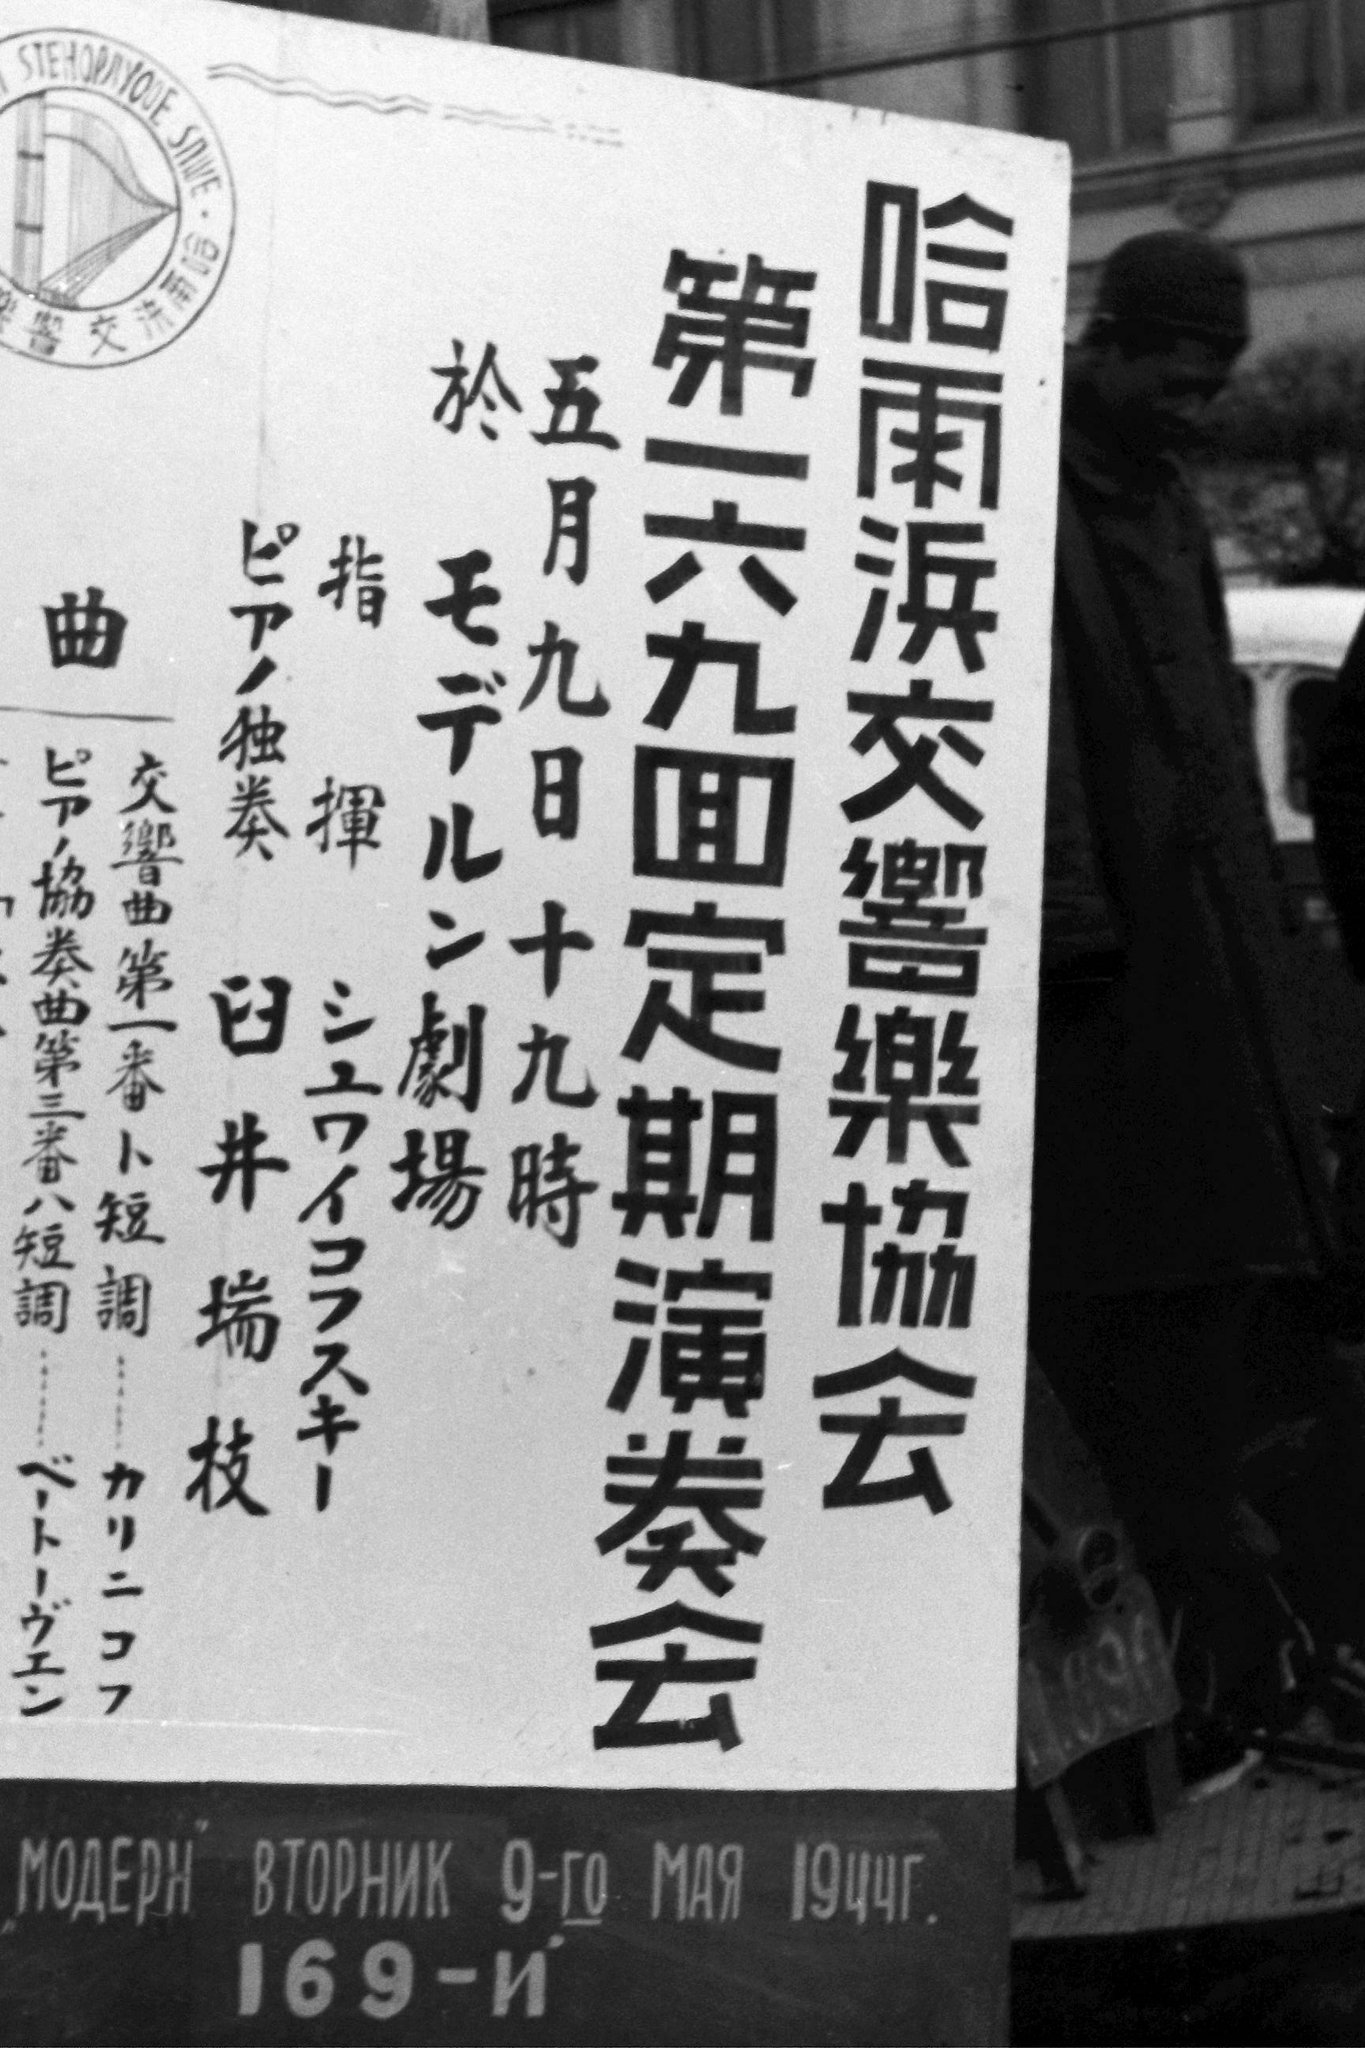 哈雨浜交響樂協会
第一六九囬定期演奏会
五月九日十九時
於モデルン劇場
指揮 シュワイコフスキー
ピアノ独奏 臼井瑞枝
曲
交響曲第一番ト短調……カリニコフ
ピアノ協奏曲第三番ハ短調……ベートーヴエン
„МОДЕРН" ВТОРНИК 9-го МАЯ 1944г.
169-й